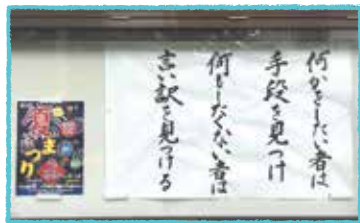 何かをしたい者は
手段を見つけ
何もしたくない者は
言い訳を見つける
まつり